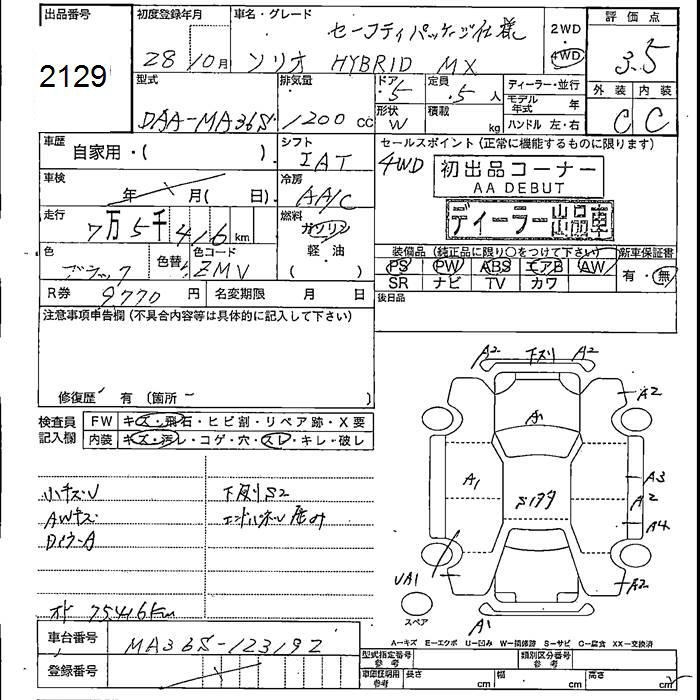 出品番号 初度登録年月 車名・グレード セーフティパッケージ仕様 2WD 評価点
2129 28/10月 ソリオ HYBRID MX 4WD 3.5
型式 排気量 ドア 定員 ディーラー・並行 外装 内装
DAA-MA36S 1200 cc 5 5人 モデル年式 年 C C
形状 積載
W kg ハンドル 左・右
車歴 シフト セールスポイント (正常に機能するものに限ります)
自家用・( ). IAT 4WD 初出品コーナー
AA DEBUT
車検 冷房
年 月( 日) AA/C ディーラー出品車
走行 燃料
7万5千416 km ガソリン
軽・油
色 色替 色コード 装備品 (純正品に限り○をつけて下さい) 新車保証書
ブラック ZMV ( ) PS PW ABS エアB AW 有・無
R券 9770 円 名変期限 月 日 SR ナビ TV カワ
後日品
注意事項申告欄 (不具合内容等は具体的に記入して下さい)
修復歴 有 (箇所 )
検査員 FW キズ・飛石・ヒビ割・リペア跡・X要
記入欄 内装 キズ・汚レ・コゲ・穴・スレ・キレ・破レ
小キズU 下廻りS2
AWキズ エンドパネル凹み
オド 75416km
車台番号 MA36S-123192
登録番号
A2 下スリ A2
A2
A1
A1
A3
A2
A4
UA1
A2
スペア
A1
A-キズ E-エクボ U-凹み W-補修跡 S-サビ C-腐食 XX-交換済
型式指定番号 参考 類別区分番号 参考
車庫証明用 参考 長さ cm 幅 cm 高さ cm